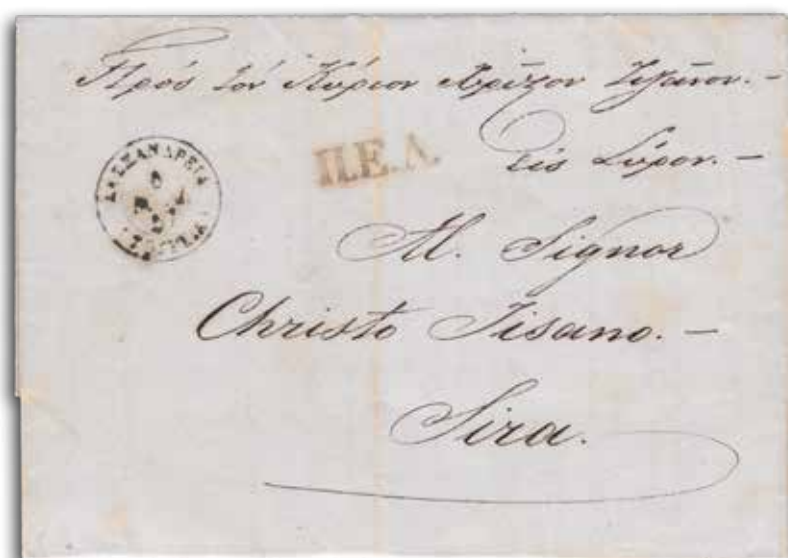 Πρὸς τὸν Κύριον Χρῖστον
εἰς Σύρον. –
ΑΛΕΞΑΝΔΡΕΙΑ
Π.Ε.Λ.
Al. Signor
Christo Tisano. –
Sira.